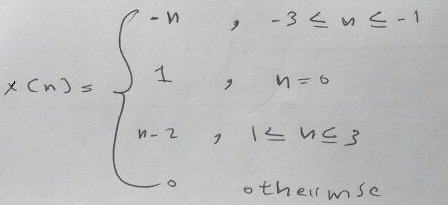 -n , -3 ≤ n ≤ -1
x(n) = { 1 , n=0
n-2 , 1 ≤ n ≤ 3
0 otherwise